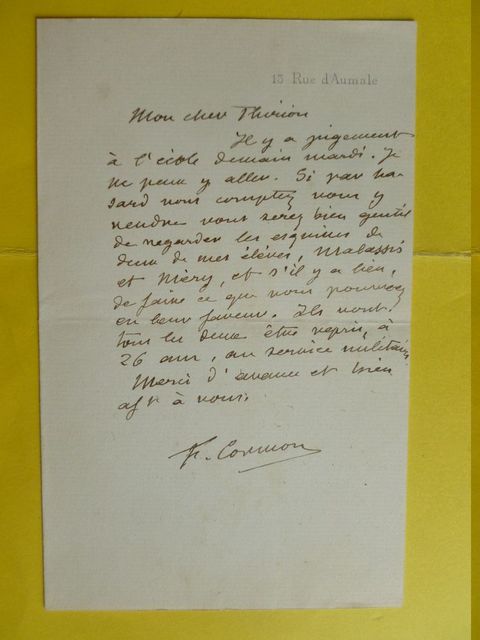 13 Rue d'Aumale
Mon cher Thirion
Il y a jugement
à l'école demain mardi. Je
ne peux y aller. Si par ha-
sard vous comptez vous y
rendre vous serez bien gentil
de regarder les esquisses de
deux de mes élèves, Malassis
et Méry, et s'il y a lieu,
de faire ce que vous pourrez
en leur faveur. Ils vont
tous les deux être repris, à
26 ans, au service militaire
Merci d'avance et bien
afft à vous.
F. Cormon